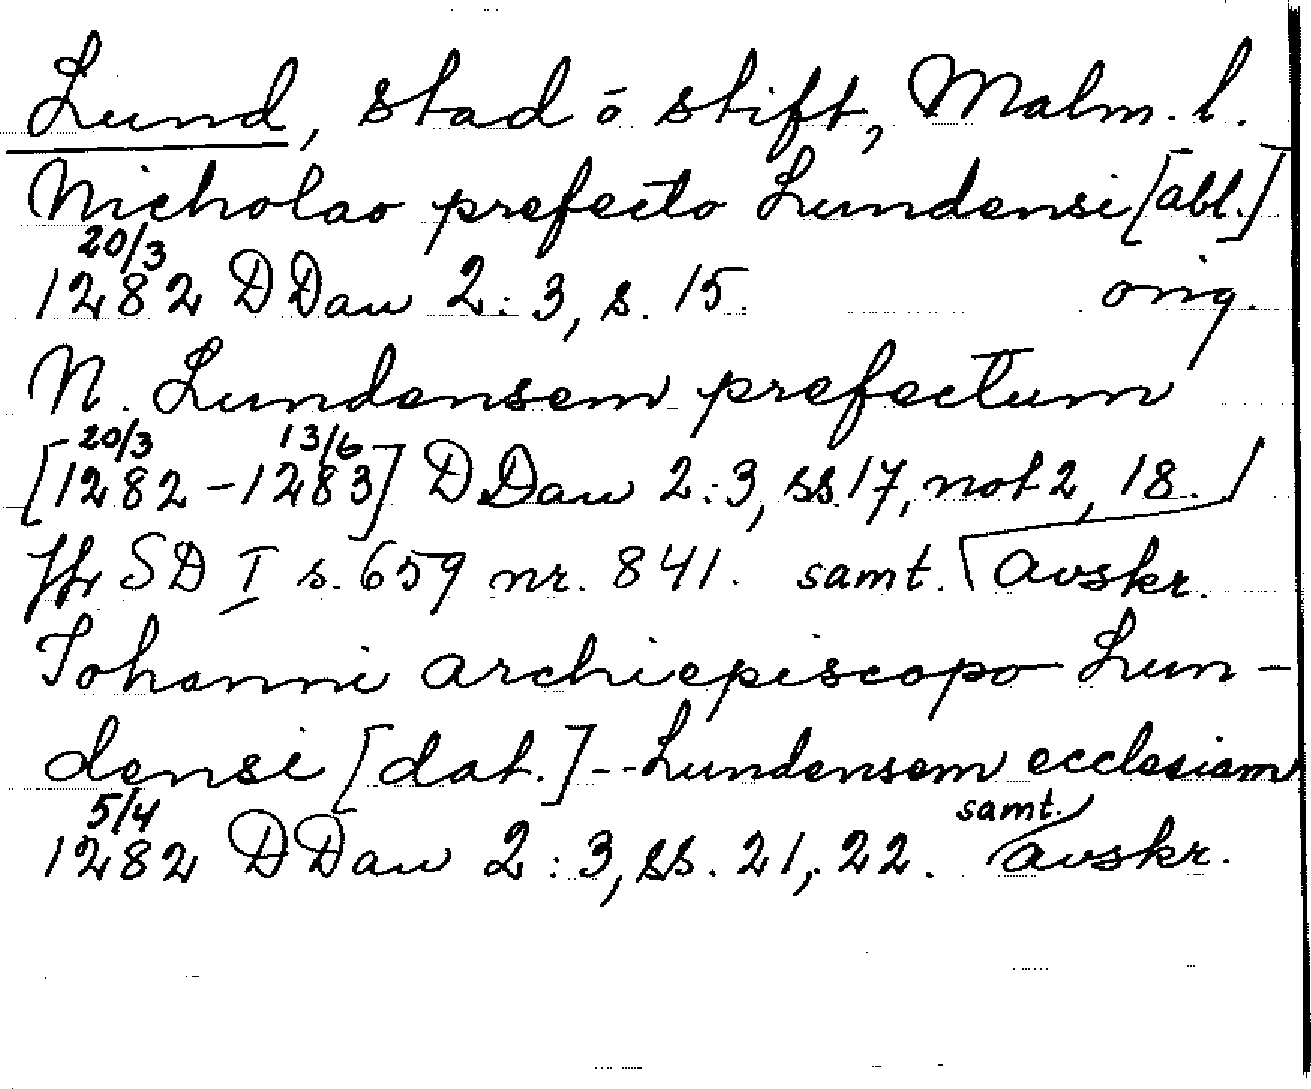 Lund, stad o stift, Malm. l.
Nicholao prefecto Lundensi [abl.]
20/3
1282 DDan 2:3, s. 15. orig.
N. Lundensem prefectum
20/3 13/6
[1282-1283] DDan 2:3, ss 17, not 2, 18.
Jfr SD I s. 659 nr. 841. samt. avskr.
Johanni archiepiscopo Lun-
densi [dat.] -- Lundensem ecclesiam
5/4 samt.
1282 DDan 2:3, ss. 21, 22. avskr.